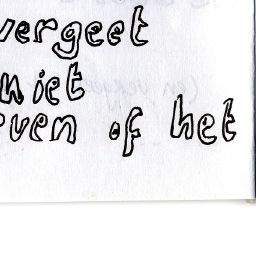 vergeet
niet
even of het